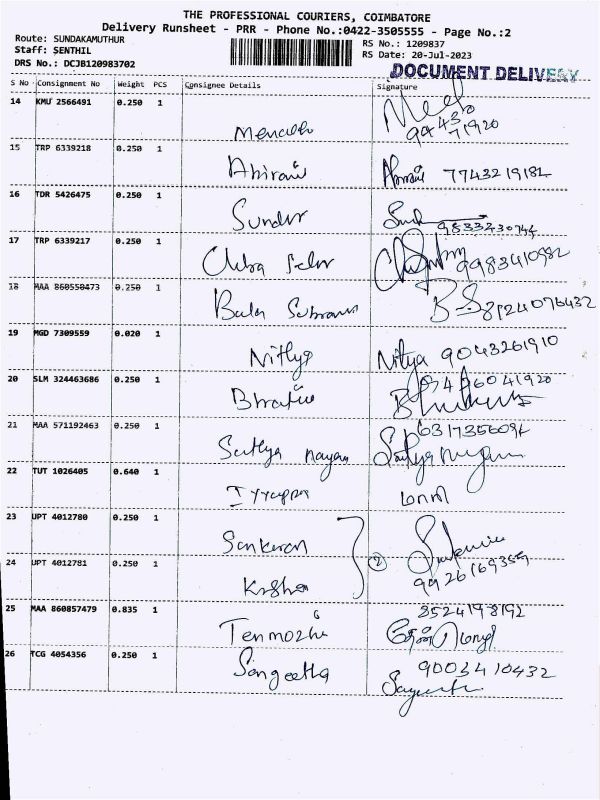 THE PROFESSIONAL COURIERS, COIMBATORE
Delivery Runsheet - PRR - Phone No.:0422-3505555 - Page No.:2
Route: SUNDAKAMUTHUR
RS No.: 1209837
Staff: SENTHIL
RS Date: 20-Jul-2023
DRS No.: DCJB120983702
DOCUMENT DELIVERY
S No Consignment No Weight PCS Consignee Details Signature
14 KMU 2566491 0.250 1
71920
15 TRP 6339218 0.250 1 Abirami 7743219182
16 TDR 5426475 0.250 1 Sundar
9833230744
17 TRP 6339217 0.250 1 9983410982
18 MAA 860550473 0.250 1 Bala 8124076432
19 MGD 7309559 0.020 1 Nithya Nitya 9043261910
20 SLM 324463686 0.250 1
21 MAA 571192463 0.250 1 Sathya nayan 6317356094
Satya
22 TUT 1026405 0.640 1 Iyyappa
23 UPT 4012780 0.250 1 Sankaran
2
24 UPT 4012781 0.250 1 9926169355
25 MAA 860857479 0.835 1 Tenmozhi 8524198192
தேன்மொழி
26 TCG 4054356 0.250 1 Sangeetha 9003410432